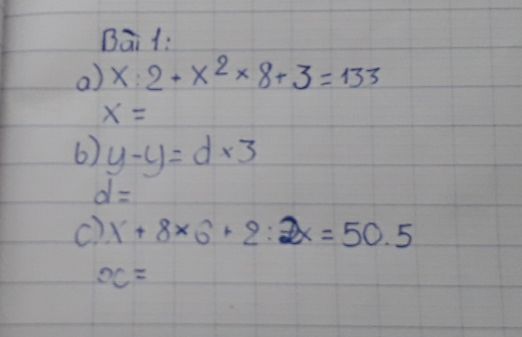 Bài 1:
a) X : 2 + X² × 8 + 3 = 133
X =
b) y - y = d × 3
d =
c) X + 8 × 6 + 2 : 2x = 50.5
x =